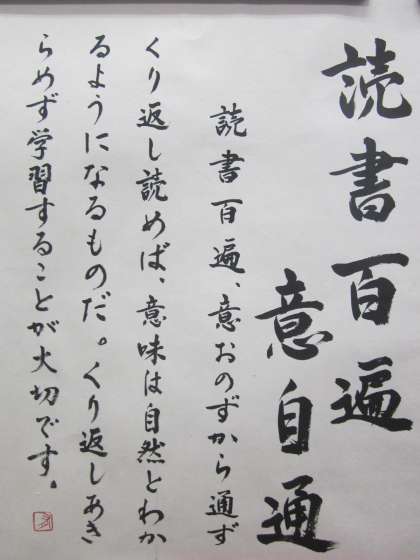 読書百遍
意自通
読書百遍、意おのずから通ず
くり返し読めば、意味は自然とわか
るようになるものだ。くり返しあき
らめず学習することが大切です。